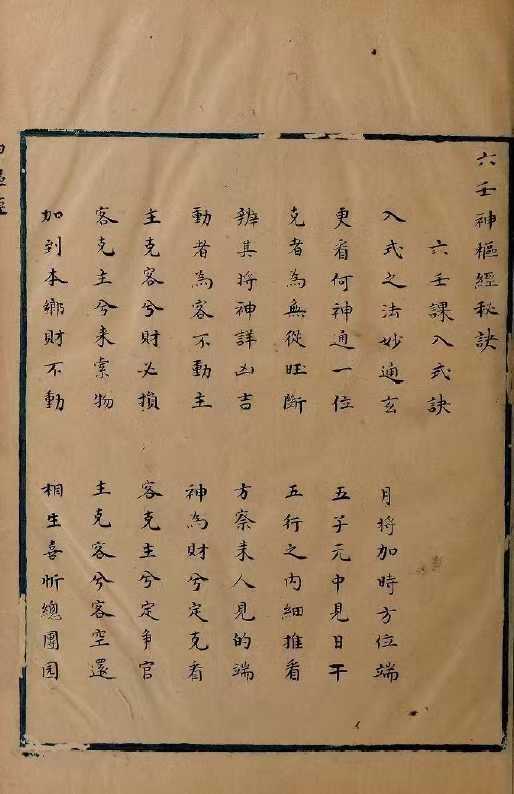 六壬神樞經秘訣
六壬課入式訣
入式之法妙通玄　月將加時方位端
更看何神通一位　五子元中見日干
克者為無從旺斷　五行之內細推看
辨其將神詳凶吉　方察來人見的端
動者為客不動主　神為財兮定克看
主克客兮財必損　客克主兮定爭官
客克主兮來索物　主克客兮客空還
加到本鄉財不動　相生喜忻總團圓